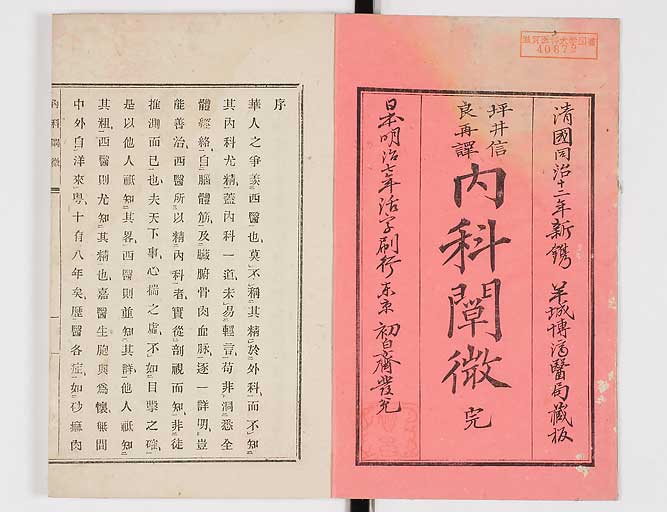 清國同治十二年新鐫 羊城博濟醫局藏板
坪井信
良再譯
內科闡微 完
日本明治七年活字刷行 東京 初白齋發兌
序
華人之爭羨西醫也莫不稱其精於外科而不知
其內科尤精蓋內科一道未易輕言苟非洞悉全
體經絡自腦體筋及臟腑骨肉血脉逐一詳明豈
能善治西醫所以精內科者實從剖視而知非徒
推測而已也夫天下事心揣之虛不如目擊之確
是以他人祇知其畧西醫則並知其詳他人祇知
其粗西醫則尤知其精也嘉醫生胞與爲懷無間
中外自洋來粵十有八年矣歷醫各症如砂痲內
內科闡微